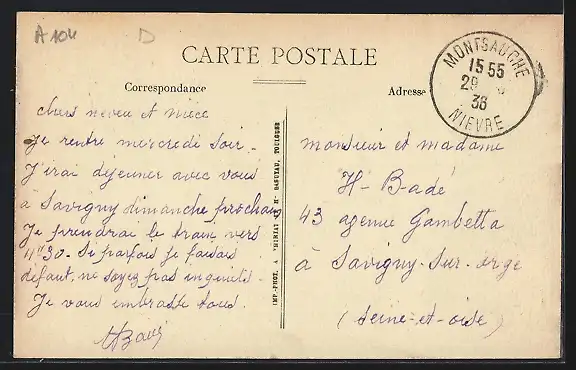 A 104
D
CARTE POSTALE
Correspondance
Adresse
MONTSAUCHE
15 55
29
38
NIEVRE
chers neveu et niece
Je rentre mercredi soir.
J'irai déjeuner avec vous
à Savigny dimanche prochain
Je prendrai le train vers
4H30. Si parfois je faisais
défaut, ne soyez pas inquiets.
Je vous embrasse tous.
monsieur et madame
H- Badé
43 avenue Gambetta
à Savigny-sur-orge
(seine-et-oise)
TOULOUSE